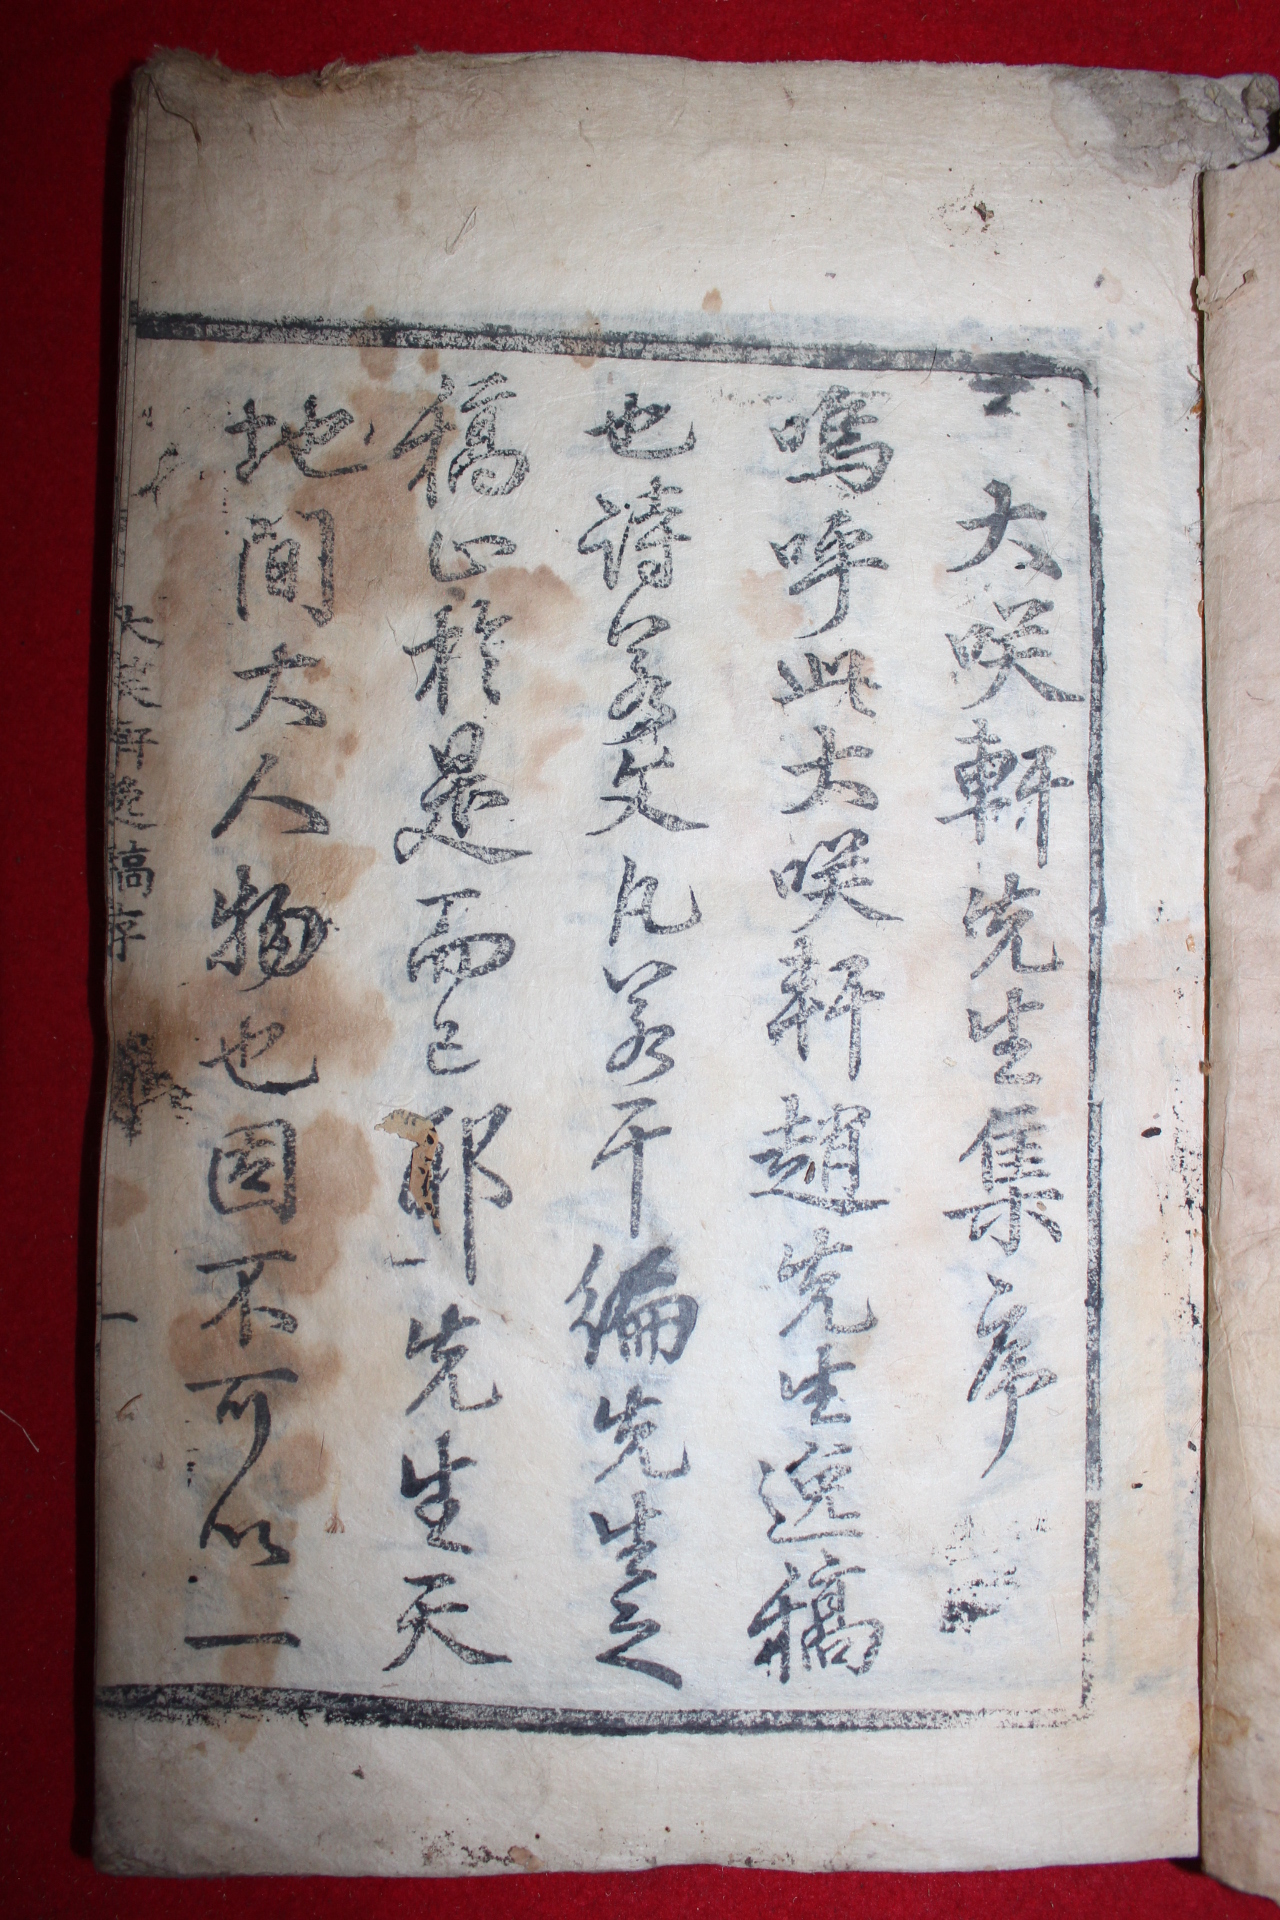 大咲軒先生集序
嗚呼此大咲軒趙先生逸稿
也詩若文凡若干編先生之
稿止於是而已耶先生天
地間大人物也固不可以一
大咲軒逸稿序
一